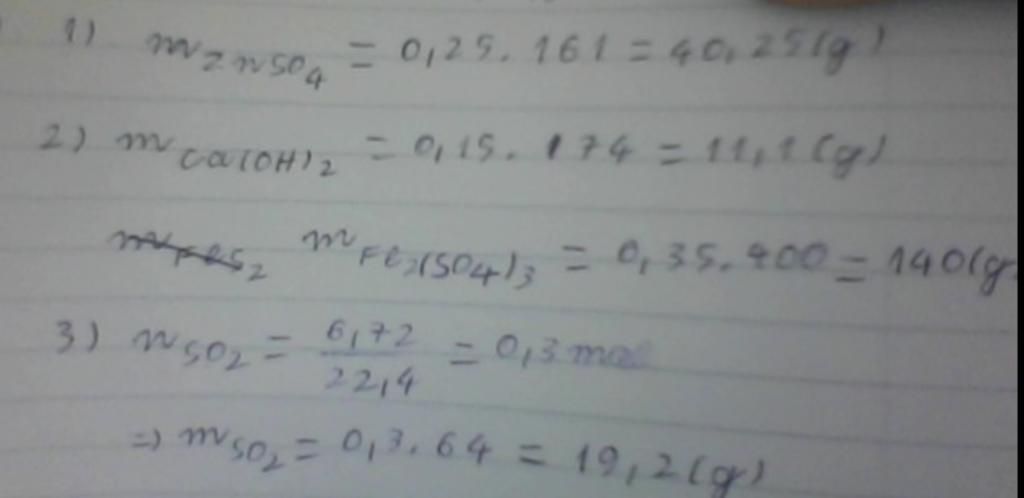 1) mZnSO4 = 0,25. 161 = 40,25(g)
2) mCa(OH)2 = 0,15. 174 = 11,1(g)
mFeS2 mFe2(SO4)3 = 0,35.400 = 140(g
3) nSO2 = 6,72 / 22,4 = 0,3 mol
=> mSO2 = 0,3. 64 = 19,2(g)